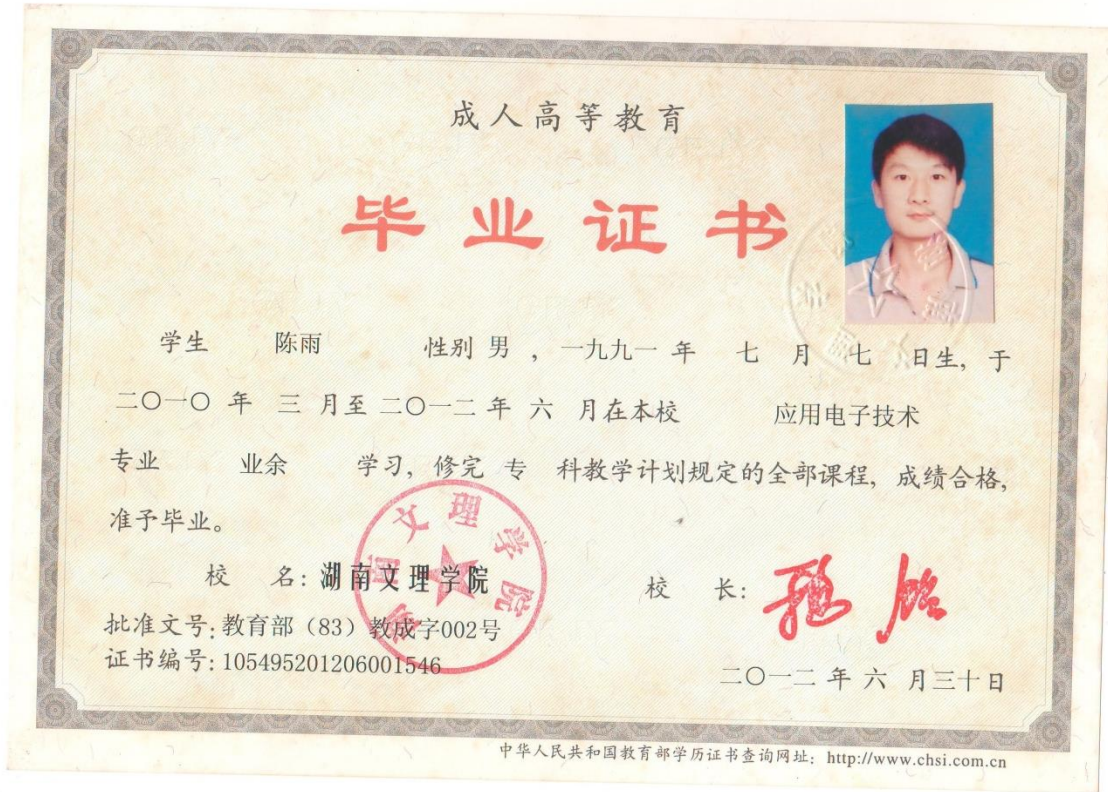 成人高等教育
毕业证书
学生 陈雨 性别 男 ，一九九一 年 七 月 七 日生，于
二〇一〇 年 三 月至 二〇一二 年 六 月在本校 应用电子技术
专业 业余 学习，修完 专 科教学计划规定的全部课程，成绩合格，
准予毕业。
校 名：湖南文理学院
湖南文理学院
校 长：
批准文号：教育部（83）教成字002号
证书编号：105495201206001546
二〇一二 年 六 月三十日
中华人民共和国教育部学历证书查询网址：http://www.chsi.com.cn